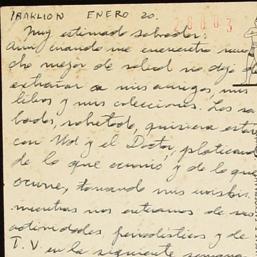 IRAKLION ENERO 20.
28003
Muy estimado salvador:
Aun cuando me encuentro mu-
cho mejor de salud no dejo de
extrañar a mis amigos, mis
libros y mis colecciones. Los sa-
bados, sobretodo, quisiera estar
con Ud y el Doctor, platicando
de lo que ocurrió y de lo que
ocurre, tomando mis
mientras nos enteramos de sus
actividades periodisticas y de
T.V en la siguiente semana